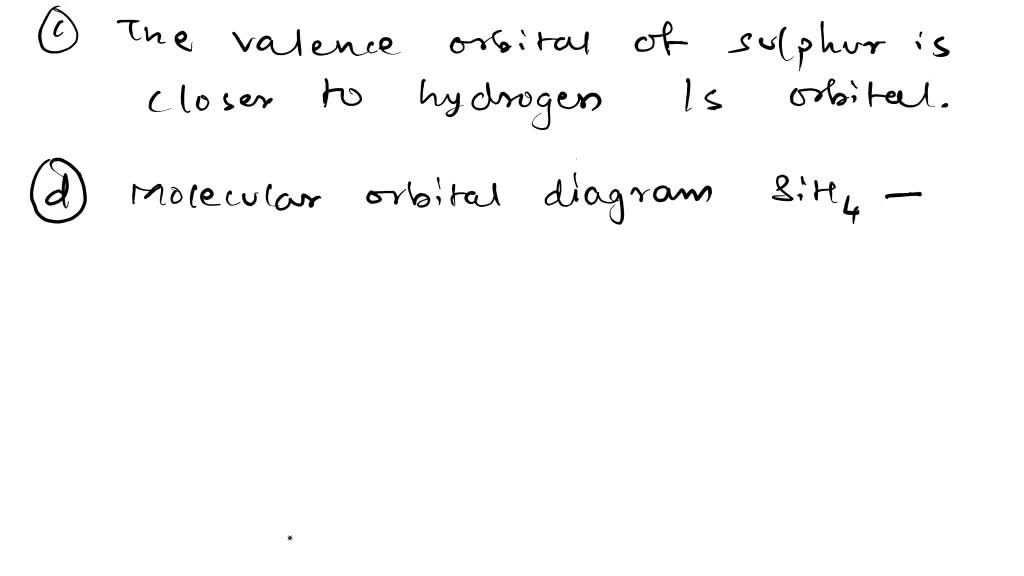 (c) The valence orbital of sulphur is
closer to hydrogen 1s orbital.
(d) Molecular orbital diagram SiH4 —